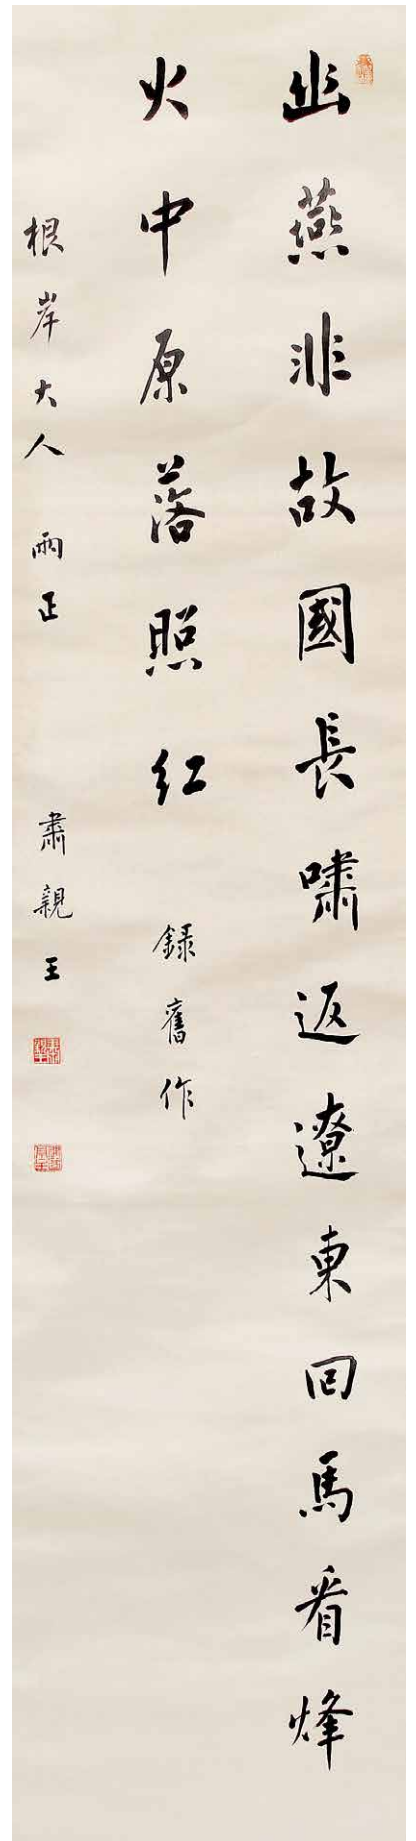 幽燕非故國長嘯返遼東回馬看烽
火中原落照紅 錄舊作
根岸大人 兩正 肅親王